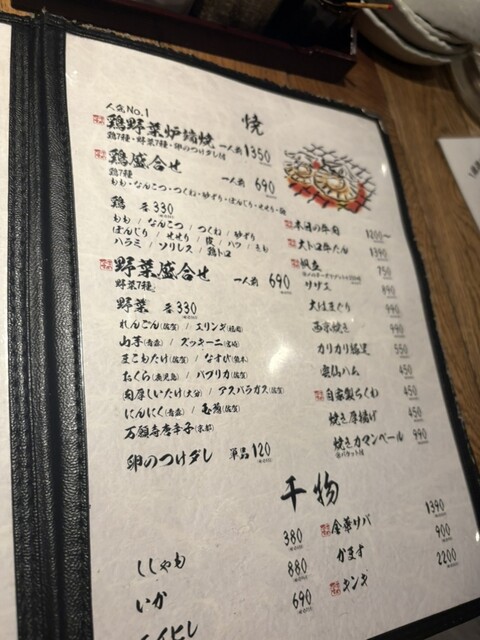 焼
人気No.1
鶏野菜炉端焼 一人前 1350
鶏7種・野菜7種・卵のつけダレ付
鶏盛合せ 一人前 690
鶏7種
もも・なんこつ・つくね・砂ずり・ぼんじり・せせり・
鶏 各330
もも / なんこつ / つくね / 砂ずり
ぼんじり / せせり / 皮 / ハツ / きも
ハラミ / ソリレス / 鶏トロ
野菜盛合せ 一人前 690
野菜7種
野菜 各330
れんこん(佐賀) / エリンギ(福岡)
山芋(青森) / ズッキーニ(宮崎)
まこもたけ(佐賀) / なすび(熊本)
おくら(鹿児島) / パプリカ(佐賀)
肉厚しいたけ(大分) / アスパラガス(佐賀)
にんにく(青森) / 玉葱(佐賀)
万願寺唐辛子(京都)
卵のつけダレ 単品 120
本日の牛肉 1200〜
大トロ牛たん 1390
帆立 750
サザエ 890
大はまぐり 990
西京焼き 990
カリカリ 550
雲仙ハム 450
自家製ちくわ 450
焼き厚揚げ 450
焼きカマンベール 990
※バケット付
干物
ししゃも 380
いか 880
エイヒレ 690
金華サバ 1390
かます 900
キンキ 2200